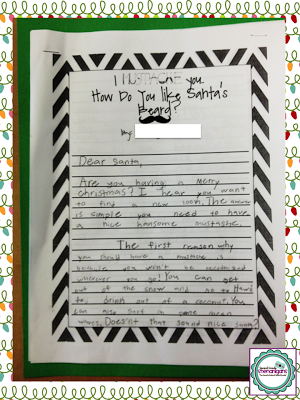 I MUSTACHE you
How Do You like Santa's
Beard?
by:
Dear Santa,
Are you having a merry
christmas? I hear you want
to find a new look. The answer
is simple you need to have
a nice hansome mustache.
The first reason why
you should have a mustache is
because you won't be
wherever you go! You can get
out of the snow and go to Hawii
to drink out of a coconut. You
can also surf in some ocean
waves. Doesn't that sound nice